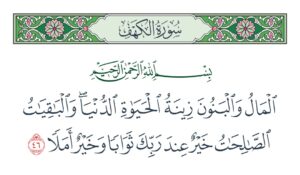 سُورَةُ الكَهْفِ
بِسْمِ اللَّهِ الرَّحْمَٰنِ الرَّحِيمِ
الْمَالُ وَالْبَنُونَ زِينَةُ الْحَيَوٰةِ الدُّنْيَا ۖ وَالْبَٰقِيَٰتُ
الصَّٰلِحَٰتُ خَيْرٌ عِندَ رَبِّكَ ثَوَابًا وَخَيْرٌ أَمَلًا ٤٦